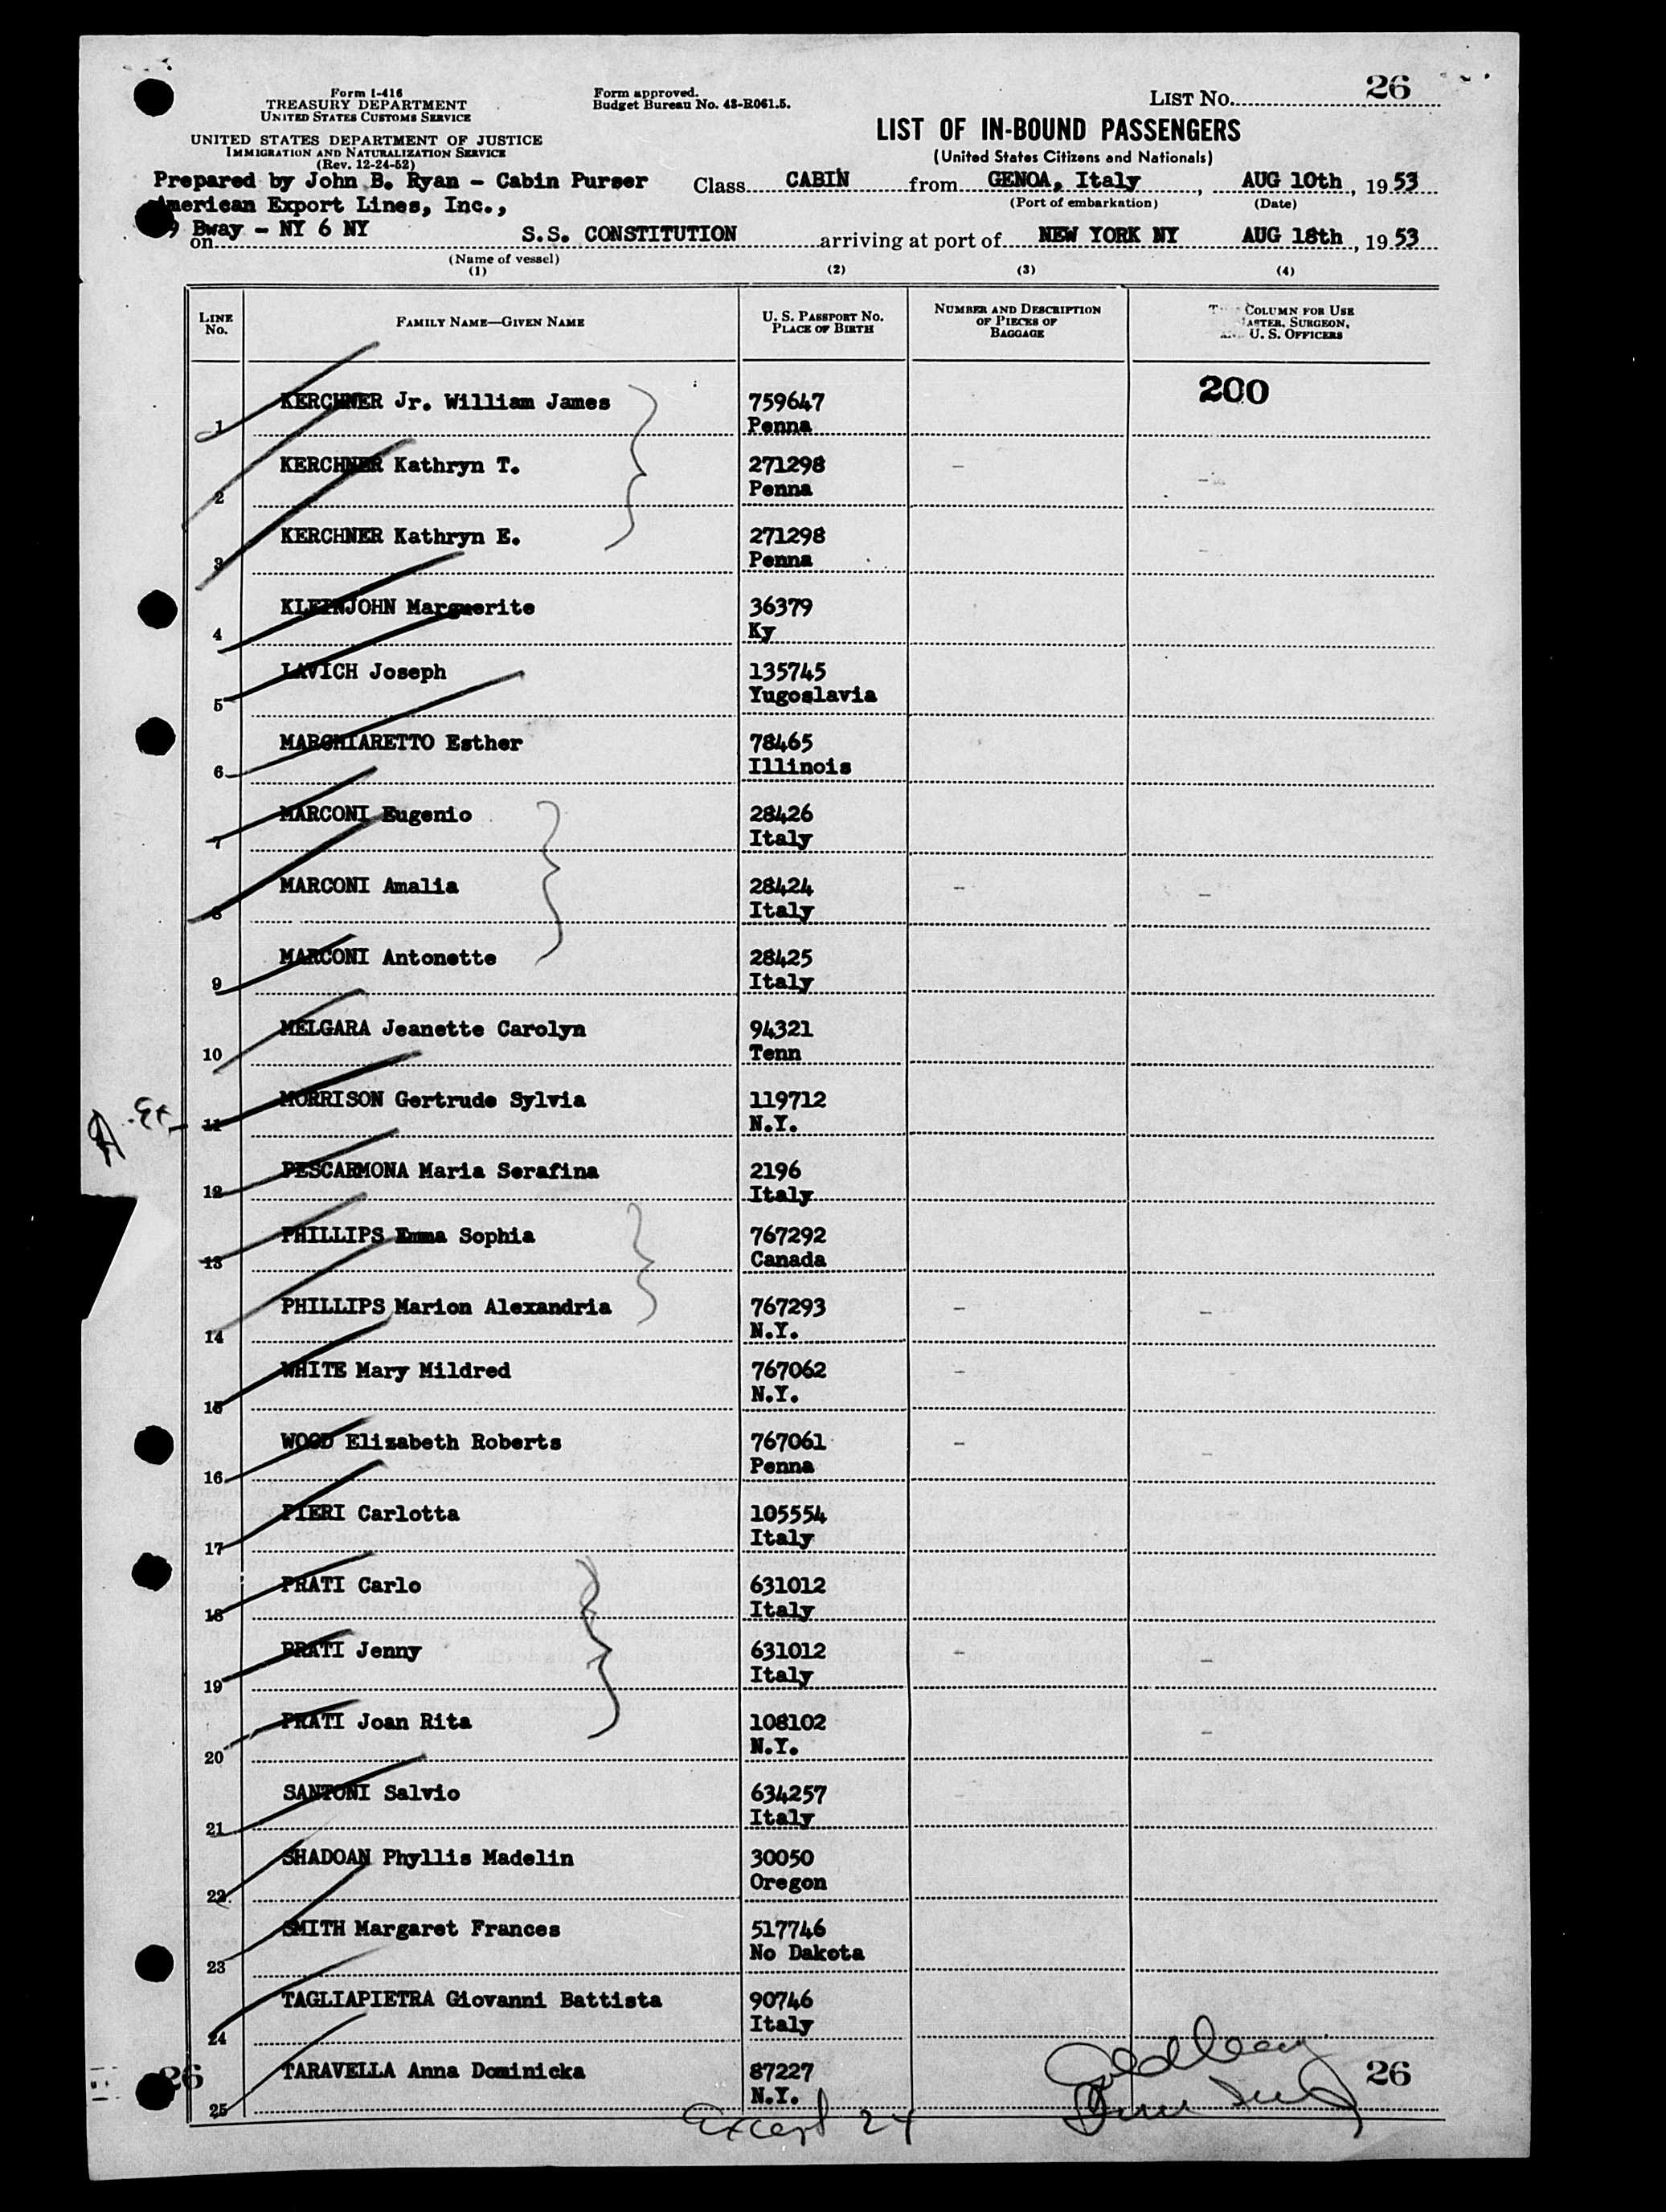 26
Form I-416
TREASURY DEPARTMENT
UNITED STATES CUSTOMS SERVICE
Form approved.
Budget Bureau No. 43-R061.5.
LIST NO.
UNITED STATES DEPARTMENT OF JUSTICE
IMMIGRATION AND NATURALIZATION SERVICE
(Rev. 12-24-52)
LIST OF IN-BOUND PASSENGERS
(United States Citizens and Nationals)
Prepared by John B. Ryan - Cabin Purser
Class CABIN from GENOA, Italy, AUG 10th, 1953
(Port of embarkation) (Date)
American Export Lines, Inc.,
9 Bway - NY 6 NY
on S.S. CONSTITUTION arriving at port of NEW YORK NY AUG 18th, 1953
(Name of vessel)
(1) (2) (3) (4)
LINE No.
FAMILY NAME—GIVEN NAME
U. S. PASSPORT NO.
PLACE OF BIRTH
NUMBER AND DESCRIPTION
OF PIECES OF
BAGGAGE
COLUMN FOR USE
SURGEON,
U. S. OFFICERS
200
1 KERCHNER Jr. William James 759647
Penna
2 KERCHNER Kathryn T. 271298
Penna
3 KERCHNER Kathryn E. 271298
Penna
4 KLEINJOHN Marguerite 36379
Ky
5 LAVICH Joseph 135745
Yugoslavia
6 MARCHIARETTO Esther 78465
Illinois
7 MARCONI Eugenio 28426
Italy
8 MARCONI Amalia 28424
Italy
9 MARCONI Antonette 28425
Italy
10 MELGARA Jeanette Carolyn 94321
Tenn
11 MORRISON Gertrude Sylvia 119712
N.Y.
12 PESCARMONA Maria Serafina 2196
Italy
13 PHILLIPS Emma Sophia 767292
Canada
14 PHILLIPS Marion Alexandria 767293
N.Y.
15 WHITE Mary Mildred 767062
N.Y.
16 WOOD Elizabeth Roberts 767061
Penna
17 PIERI Carlotta 105554
Italy
18 PRATI Carlo 631012
Italy
19 PRATI Jenny 631012
Italy
20 PRATI Joan Rita 108102
N.Y.
21 SANTONI Salvio 634257
Italy
22 SHADOAN Phyllis Madelin 30050
Oregon
23 SMITH Margaret Frances 517746
No Dakota
24 TAGLIAPIETRA Giovanni Battista 90746
Italy
25 TARAVELLA Anna Dominicka 87227
N.Y.
26
26
Except 24